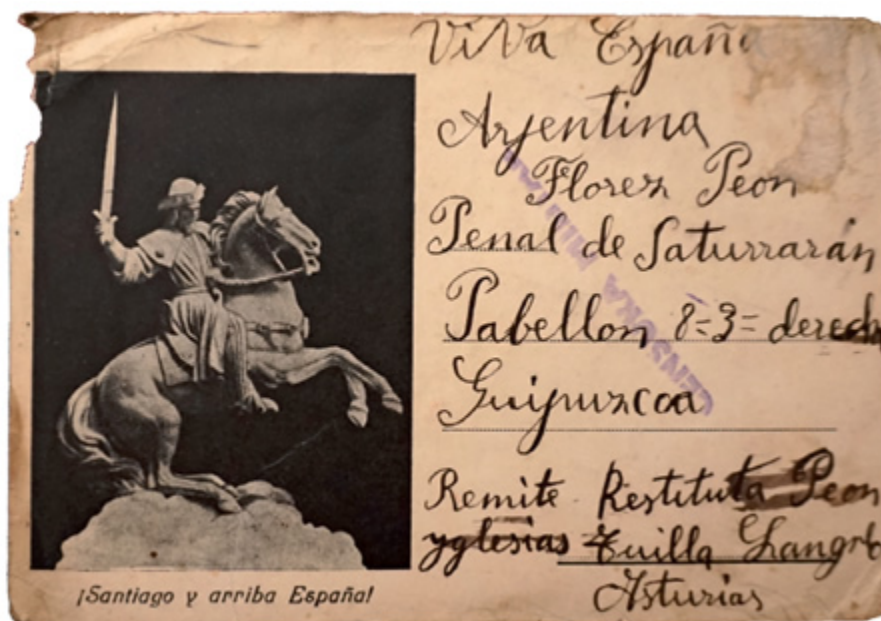 Viva España
Argentina
Florez Peon
Penal de Saturrarán
Pabellon 8=3= derecha
Guipuzcoa
Remite Restituta Peon
yglesias Tuilla Langreo
Asturias
CENSURA MILITAR
¡Santiago y arriba España!